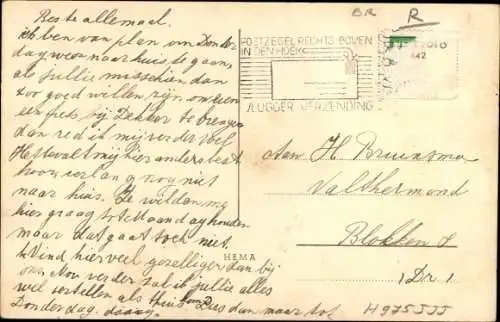 Beste allemaal.
ik ben van plan om Donder
dag weer naar huis te gaan,
als jullie misschien dan
zoo goed willen zijn, om een
fiets bij Dekker te brengen
dan red ik mij verder wel
Het bevalt mij hier anders best
hoor verlang nog niet
naar huis. Ze wilden mij
hier graag tot Maandag houden
maar dat gaat toch niet.
k Vind hier veel gezelliger dan bij
verder zal ik jullie alles
wel vertellen als thuis kom Dus dan maar tot
Donderdag. daaag.
BR R
POSTZEGEL RECHTS-BOVEN
IN DEN HOEK
VLUGGER VERZENDING
442
Aan H Bruinsma
Valthermond
Blokken
(Dr.)
HEMA
H975JJJ